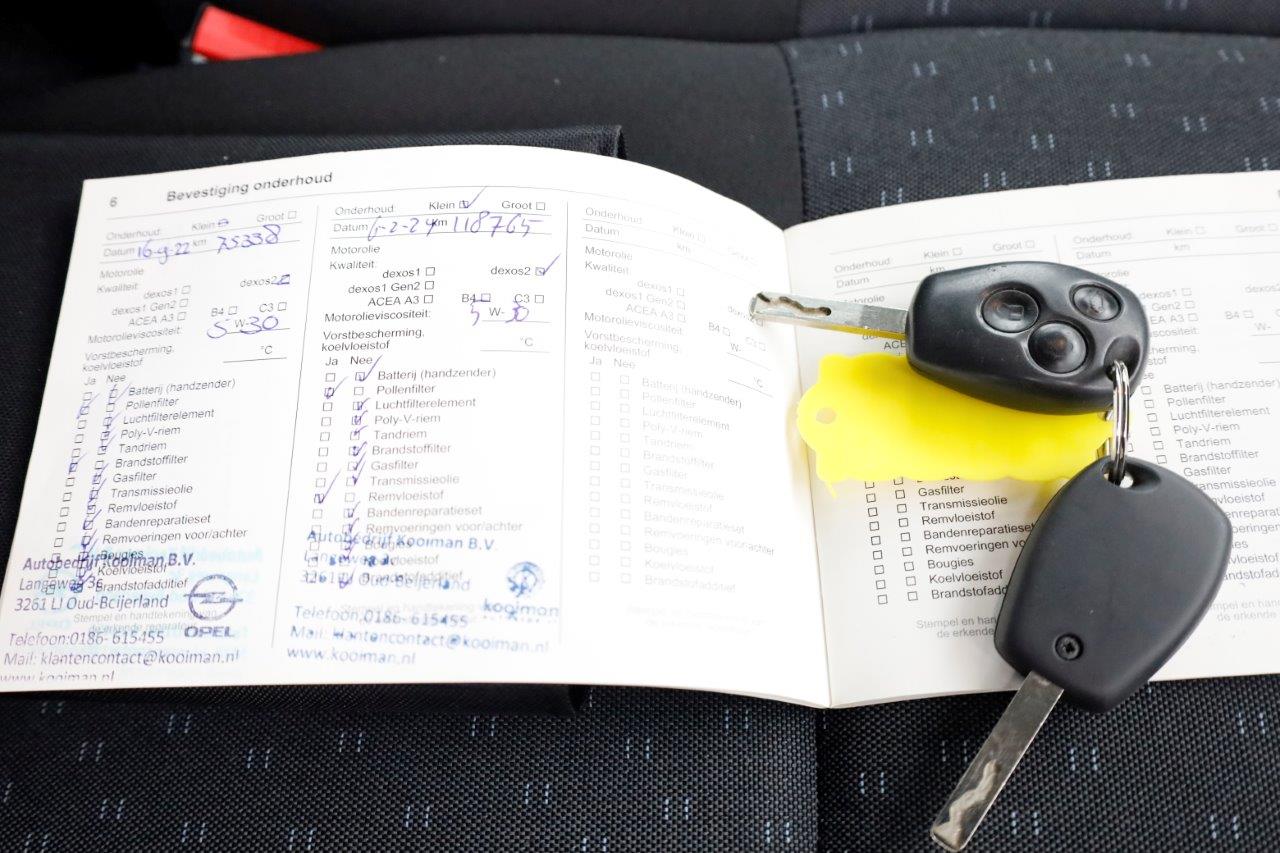 6 Bevestiging onderhoud
Onderhoud: Klein Groot
Datum 16-9-22 km 75338
Motorolie
Kwaliteit:
dexos1 dexos2
dexos1 Gen2
ACEA A3 B4 C3
Motorolieviscositeit: 5 W-30
Vorstbescherming,
koelvloeistof °C
Ja Nee
Batterij (handzender)
Pollenfilter
Luchtfilterelement
Poly-V-riem
Tandriem
Brandstoffilter
Gasfilter
Transmissieolie
Remvloeistof
Bandenreparatieset
Remvoeringen voor/achter
Bougies
Koelvloeistof
Brandstofadditief
Autobedrijf Kooiman B.V.
Langeweg 3c
3261 LJ Oud-Beijerland
OPEL
Stempel en handtekening van
de erkende reparateur
Telefoon:0186- 615455
Mail: klantencontact@kooiman.nl
www.kooiman.nl
Onderhoud: Klein Groot
Datum km 118765
Motorolie
Kwaliteit:
dexos1 dexos2
dexos1 Gen2
ACEA A3 B4 C3
Motorolieviscositeit: 5 W-30
Vorstbescherming,
koelvloeistof °C
Ja Nee
Batterij (handzender)
Pollenfilter
Luchtfilterelement
Poly-V-riem
Tandriem
Brandstoffilter
Gasfilter
Transmissieolie
Remvloeistof
Bandenreparatieset
Remvoeringen voor/achter
Bougies
Koelvloeistof
Brandstofadditief
Autobedrijf Kooiman B.V.
Langeweg
3261 LJ Oud-Beijerland
kooiman
Stempel en handtekening
Telefoon:0186- 615455
Mail: klantencontact@kooiman.nl
www.kooiman.nl
Onderhoud: Klein
Datum km
Motorolie
Kwaliteit:
dexos1
dexos1 Gen2
ACEA A3 B4 C3
Motorolieviscositeit: W-
Vorstbescherming,
koelvloeistof °C
Ja Nee
Batterij (handzender)
Pollenfilter
Luchtfilterelement
Poly-V-riem
Tandriem
Brandstoffilter
Gasfilter
Transmissieolie
Remvloeistof
Bandenreparatieset
Remvoeringen voor/achter
Bougies
Koelvloeistof
Brandstofadditief
Stempel en handtekening van
de erkende
Onderhoud: Klein Groot
Datum km
Gasfilter
Transmissieolie
Remvloeistof
Bandenreparatieset
Remvoeringen
Bougies
Koelvloeistof
Stempel en
de erkende
Onderhoud: Klein Groot
Datum km
dexos1
Gen2
ACEA A3 B4
W-
Batterij (handzender)
Pollenfilter
Luchtfilterelement
Poly-V-riem
Tandriem
Brandstoffilter
Gasfilter